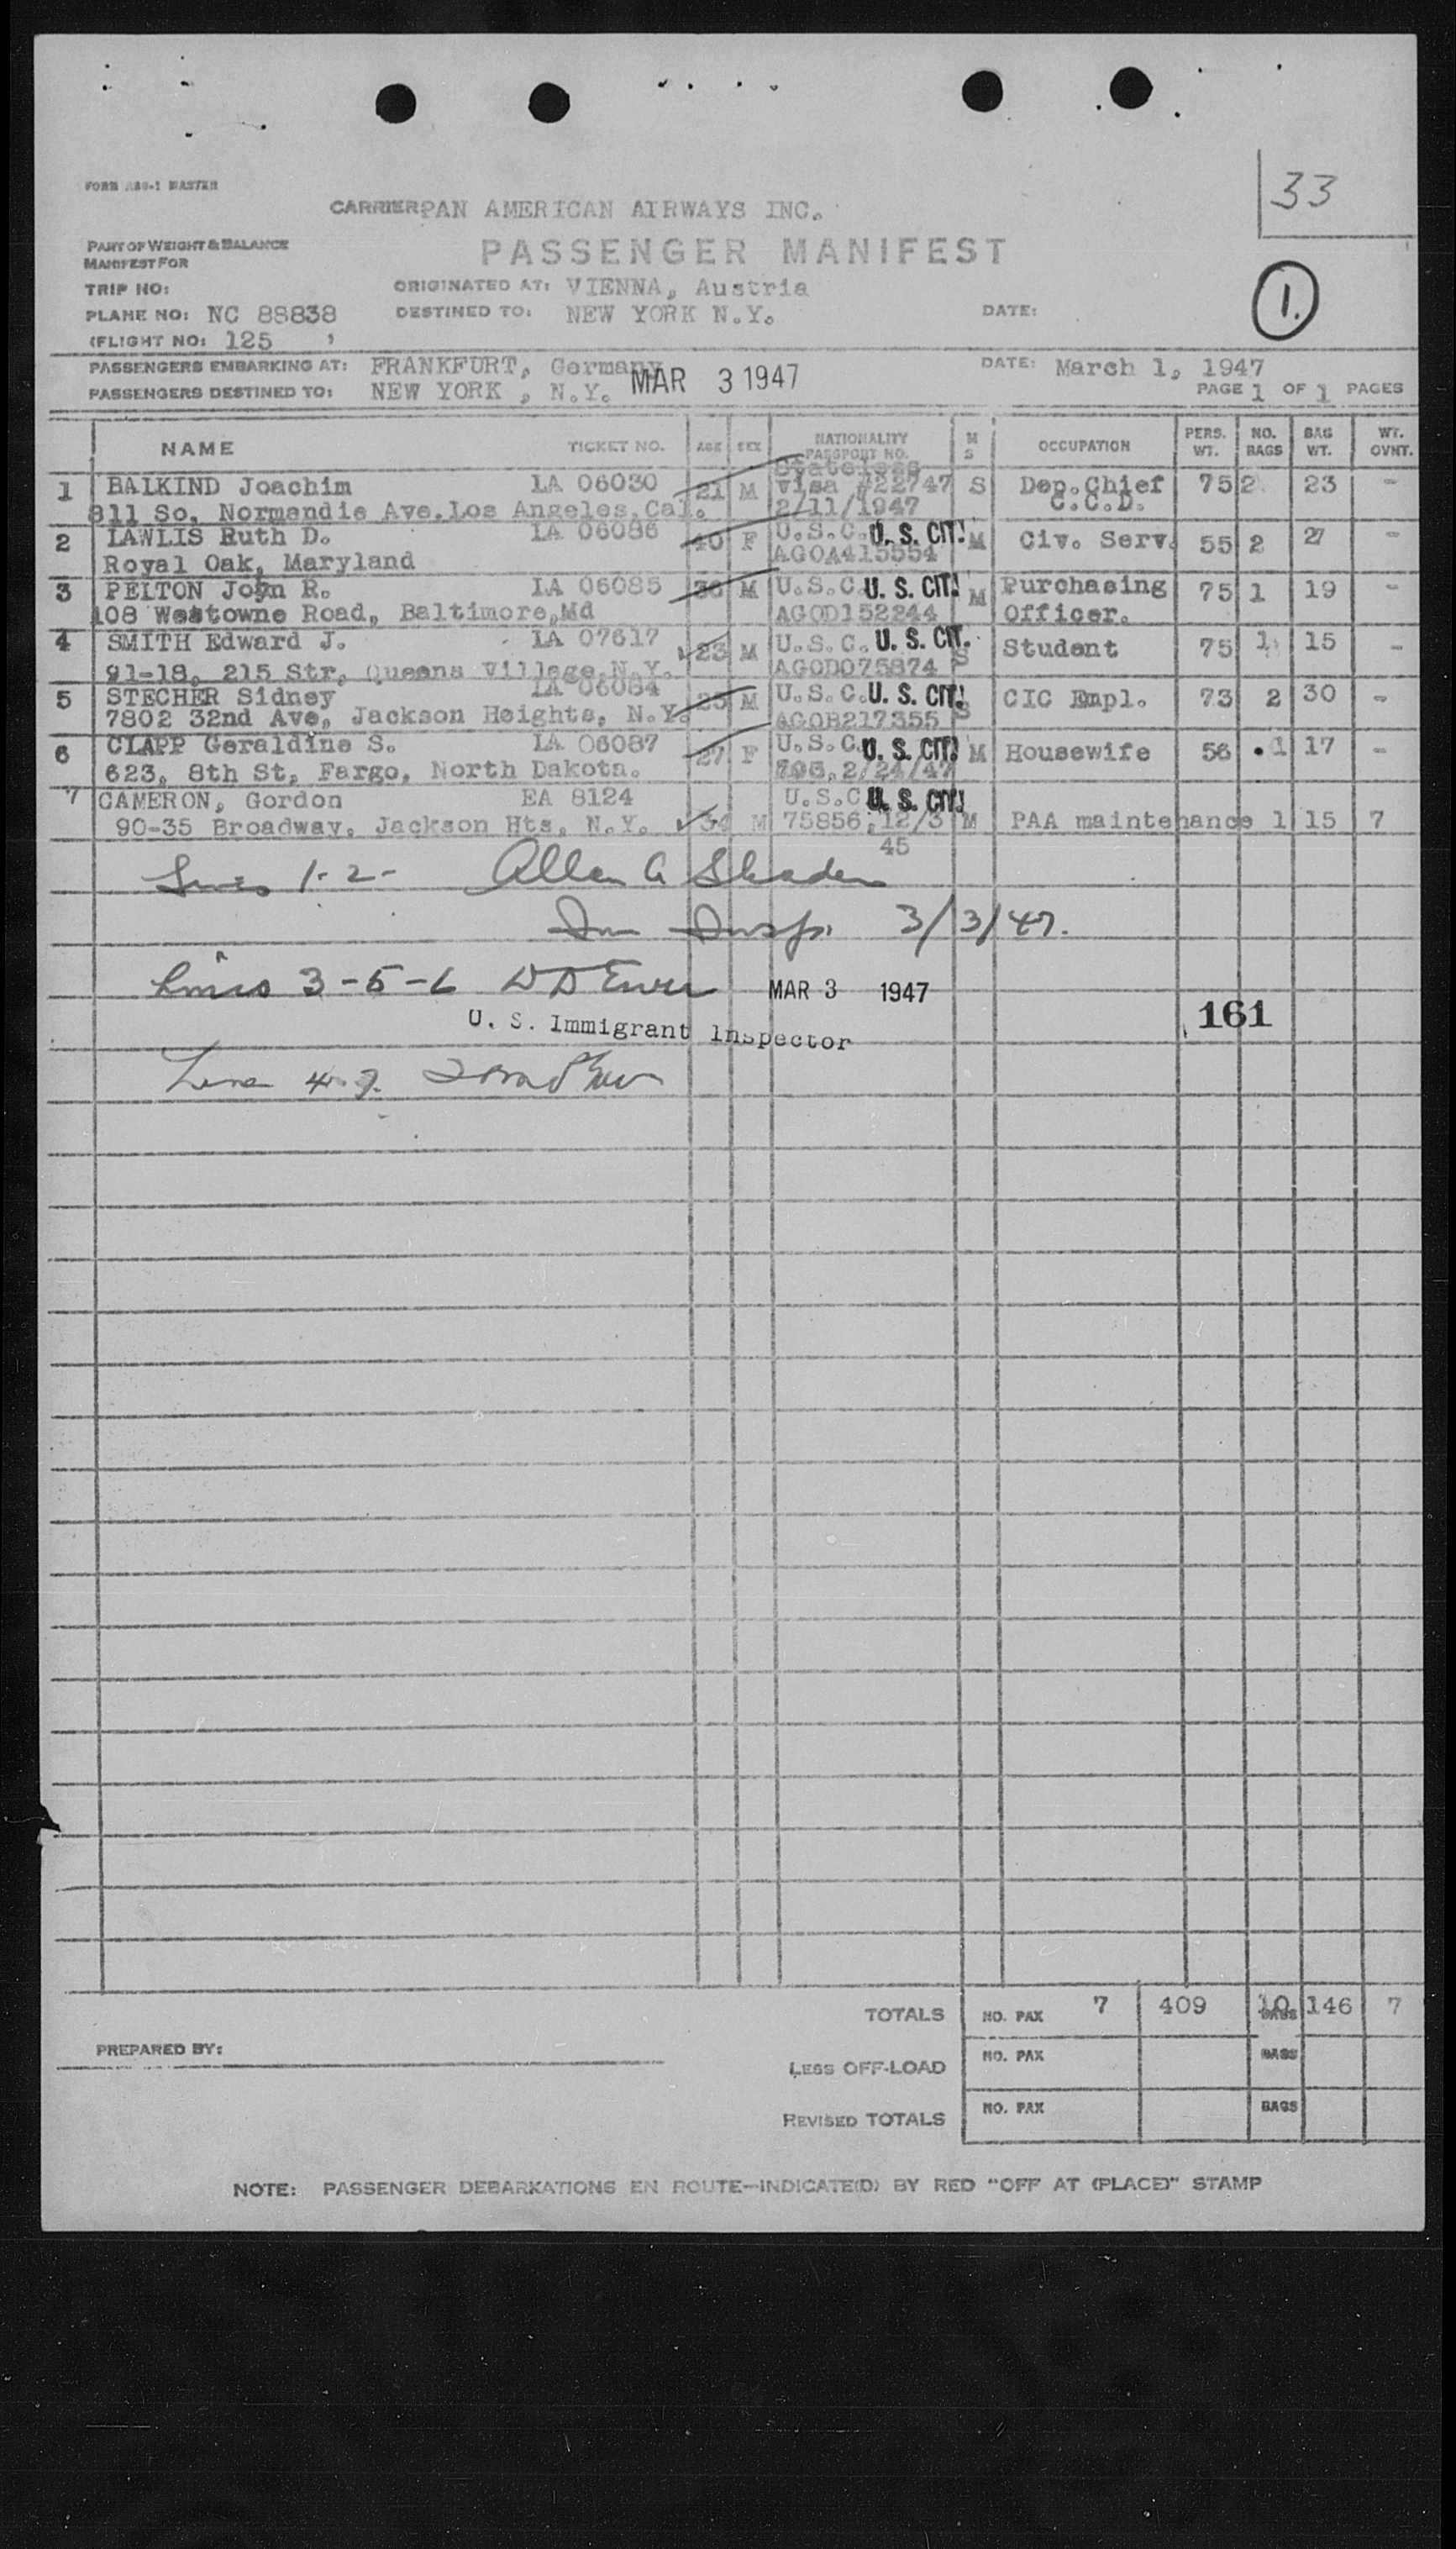 33
FORM ABS-1 MASTER
CARRIER PAN AMERICAN AIRWAYS INC.
PART OF WEIGHT & BALANCE
MANIFEST FOR
PASSENGER MANIFEST
TRIP NO:
ORIGINATED AT: VIENNA, Austria
PLANE NO: NC 88838
DESTINED TO: NEW YORK N.Y.
DATE:
1.
(FLIGHT NO: 125 )
PASSENGERS EMBARKING AT: FRANKFURT, Germany
DATE: March 1, 1947
PASSENGERS DESTINED TO: NEW YORK , N.Y.
MAR 3 1947
PAGE 1 OF 1 PAGES
NAME TICKET NO. AGE SEX NATIONALITY PASSPORT NO. M S OCCUPATION PERS. WT. NO. BAGS BAG WT. WT. OVNT.
Stateless
1 BALKIND Joachim LA 06030 21 M Visa #22747 S Dep.Chief 75 2 23 -
811 So. Normandie Ave.Los Angeles,Cal. 2/11/1947 C.C.D.
2 LAWLIS Ruth D. LA 06086 40 F U.S.C. U. S. CIT. M Civ. Serv. 55 2 27 -
Royal Oak, Maryland AGOA415554
3 PELTON John R. LA 06085 36 M U.S.C. U. S. CIT. M Purchasing 75 1 19 -
108 Westowne Road, Baltimore,Md AGOD152244 Officer.
4 SMITH Edward J. LA 07617 23 M U.S.C. U. S. CIT. S Student 75 1 15 -
91-18, 215 Str, Queens Village,N.Y. AGOD075874
5 STECHER Sidney LA 06084 25 M U.S.C. U. S. CIT. S CIC Empl. 73 2 30 -
7802 32nd Ave, Jackson Heights, N.Y. AGOB217355
6 CLAPP Geraldine S. LA 06087 27 F U.S.C. U. S. CIT. M Housewife 56 1 17 -
623, 8th St, Fargo, North Dakota. 2/24/47
7 CAMERON, Gordon EA 8124 U.S.C U. S. CIT.
90-35 Broadway, Jackson Hts, N.Y. 34 M 75856,12/3 M PAA maintenance 1 15 7
45
Lines 1-2- Allen A
Im Insp. 3/3/47.
Lines 3-5-6 MAR 3 1947
161
U. S. Immigrant Inspector
Line 4-7.
TOTALS NO. PAX 7 409 10 BAGS 146 7
PREPARED BY:
LESS OFF-LOAD NO. PAX BAGS
REVISED TOTALS NO. PAX BAGS
NOTE: PASSENGER DEBARKATIONS EN ROUTE-INDICATE(D) BY RED "OFF AT (PLACE)" STAMP